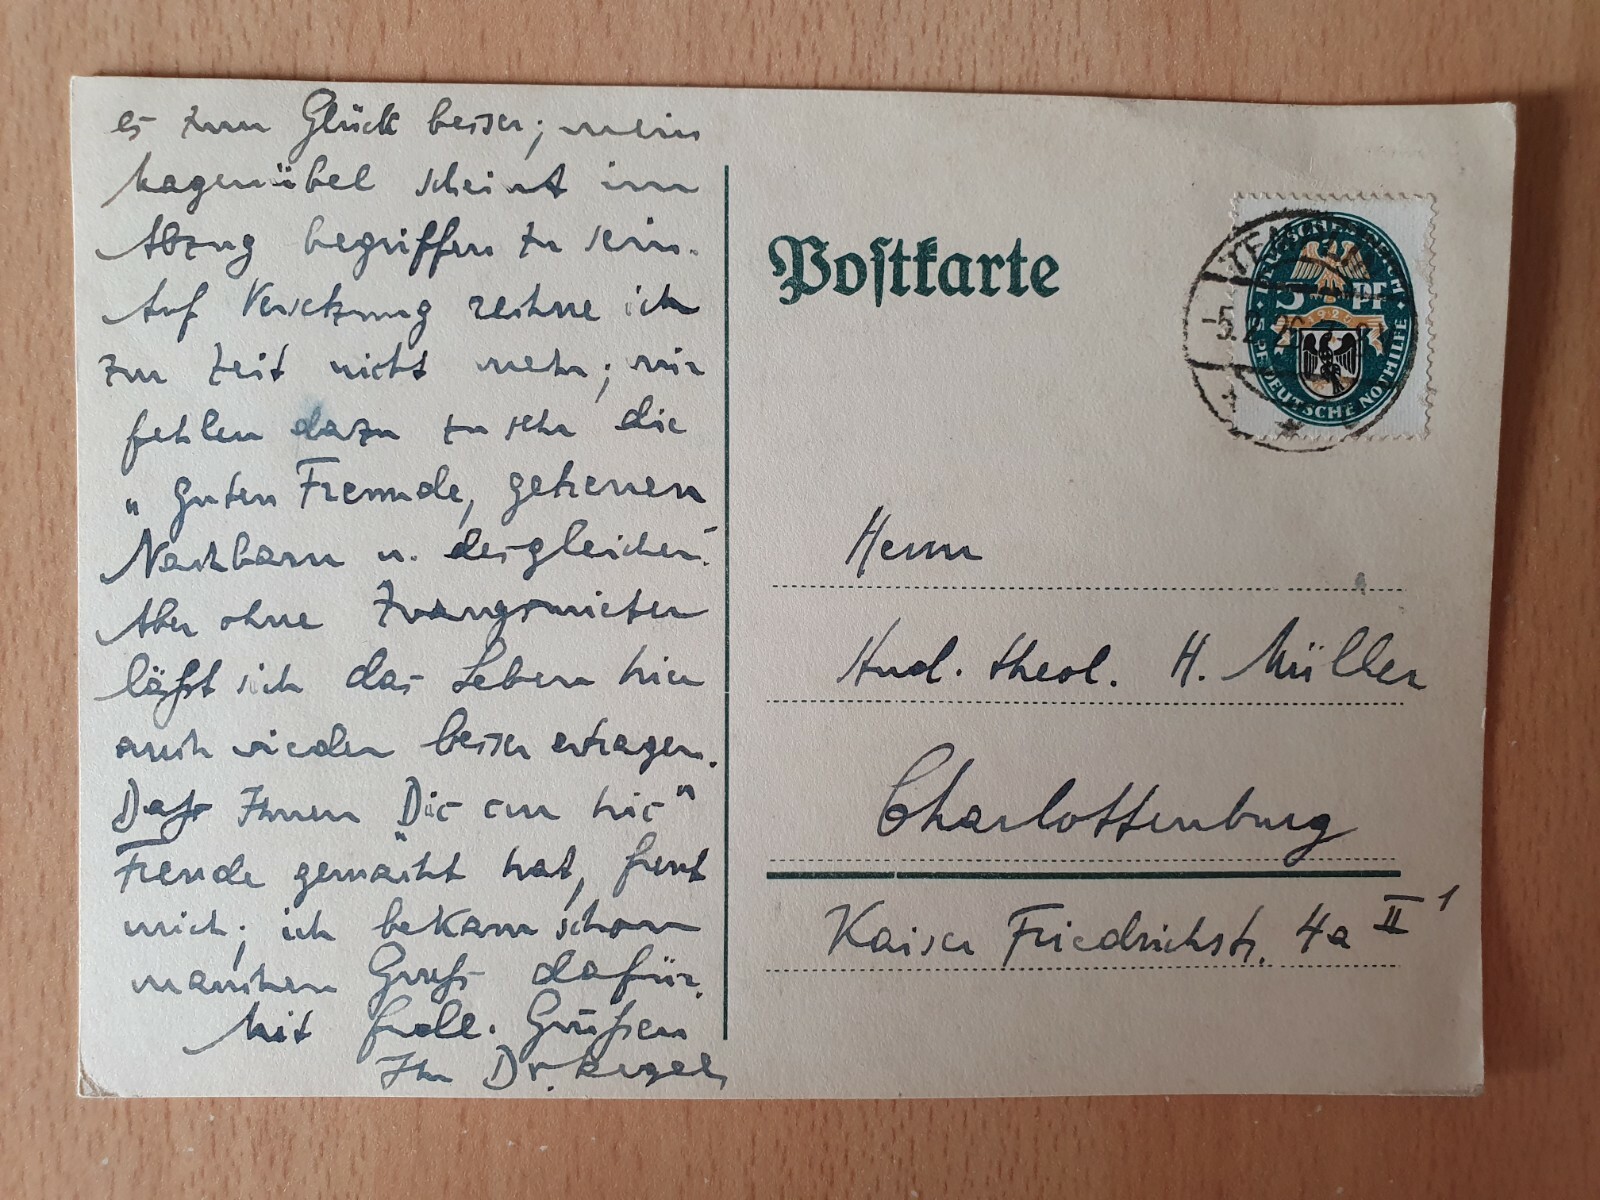 es zum Glück besser; mein
Magenübel scheint im
Abzug begriffen zu sein.
Auf Versetzung rechne ich
zur Zeit nicht mehr; mir
fehlen dazu zu sehr die
„Guten Freunde, getreuen
Nachbarn u. desgleichen“.
Aber ohne Zwangsmieter
läßt sich das Leben hier
auch wieder besser ertragen.
Daß Ihnen „Die cur hic“
Freude gemacht hat, freut
mich; ich bekam schon
manchen Gruß dafür.
Mit frdl. Grüßen
Ihr Dr.
Postkarte
5 PF
1925
DEUTSCHE NOTHILFE
-5.2.26
Herrn
stud. theol. H. Müller
Charlottenburg
Kaiser Friedrichstr. 4a II 1